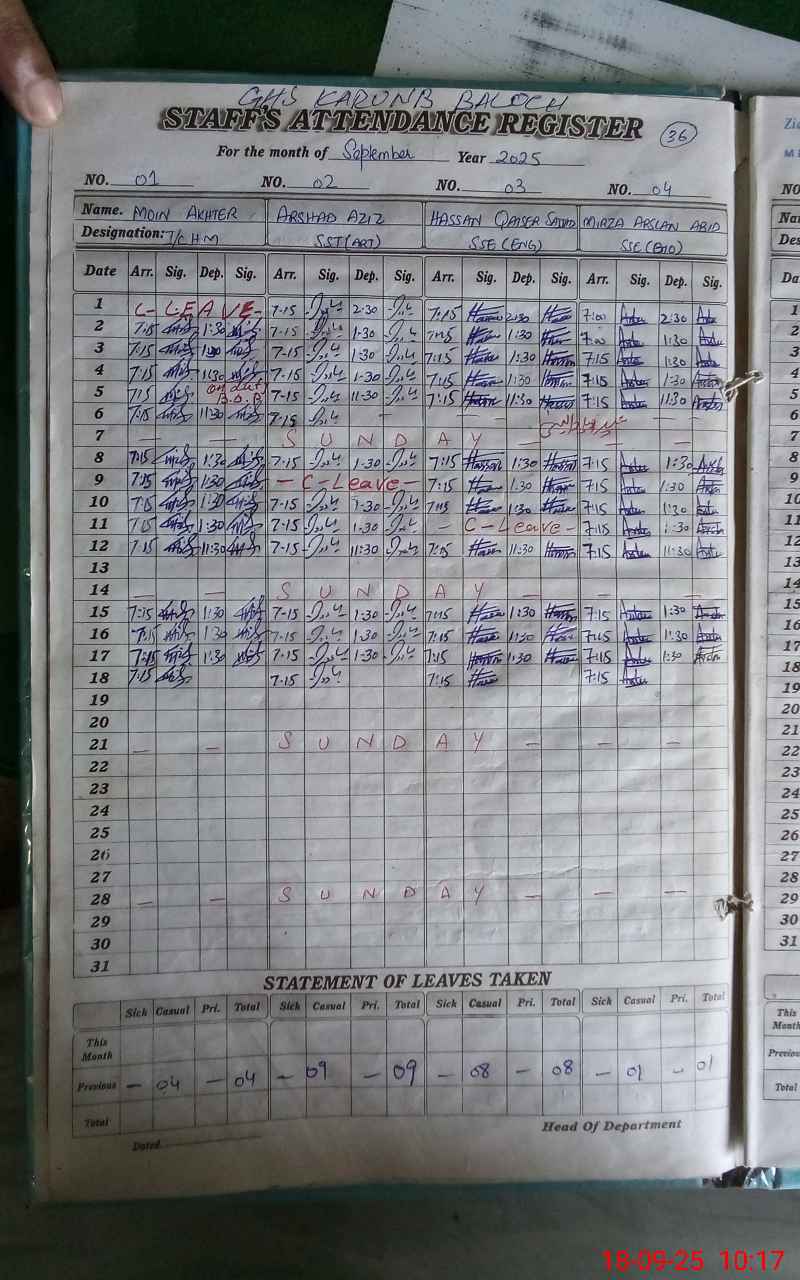 GHS KARUNB BALOCH
STAFF'S ATTENDANCE REGISTER
36
For the month of September Year 2025
NO. 01 NO. 02 NO. 03 NO. 04
Name. MOIN AKHTER ARSHAD AZIZ HASSAN QAISER SAJJAD MIRZA ARSLAN ABID
Designation: I/C HM SST(ART) SSE(ENG) SSE(BIO)
Date Arr. Sig. Dep. Sig. Arr. Sig. Dep. Sig. Arr. Sig. Dep. Sig. Arr. Sig. Dep. Sig.
1 C-LEAVE- 7-15 2:30 7:15 2:30 7:00 2:30
2 7:15 1:30 7-15 1-30 7:15 1:30 7:00 1:30
3 7:15 1:30 7-15 1-30 7:15 1:30 7:15 1:30
4 7:15 1:30 7-15 1-30 7:15 1:30 7:15 1:30
5 7:15 on duty B.O.B 7-15 11-30 7:15 11:30 7:15 11:30
6 7:15 11:30 7-15 - - - - -
7 - - S U N D A Y - - -
8 7:15 1:30 7-15 1-30 7:15 1:30 7:15 1:30
9 7:15 1:30 - C-Leave - 7:15 1:30 7:15 1:30
10 7:15 1:30 7-15 1-30 7:15 1:30 7:15 1:30
11 7:15 1:30 7-15 1-30 - C-Leave - 7:15 1:30
12 7:15 11:30 7-15 11:30 7:15 11:30 7:15 11:30
13
14 - - S U N D A Y - - -
15 7:15 1:30 7-15 1-30 7:15 1:30 7:15 1:30
16 7:15 1:30 7-15 1-30 7:15 1:30 7:15 1:30
17 7:15 1:30 7-15 1-30 7:15 1:30 7:15 1:30
18 7:15 7-15 7:15 7:15
19
20
21 - - S U N D A Y - - -
22
23
24
25
26
27
28 - - S U N D A Y - - -
29
30
31
STATEMENT OF LEAVES TAKEN
Sick Casual Pri. Total Sick Casual Pri. Total Sick Casual Pri. Total Sick Casual Pri. Total
This Month
Previous - 04 - 04 - 09 - 09 - 08 - 08 - 01 - 01
Total
Head Of Department
Dated
Zia
NO
Nar
Des
Da
1
2
3
4
5
6
7
8
9
10
11
12
13
14
15
16
17
18
19
20
21
22
23
24
25
26
27
28
29
30
31
This
Month
Previou
Total
18-09-25 10:17